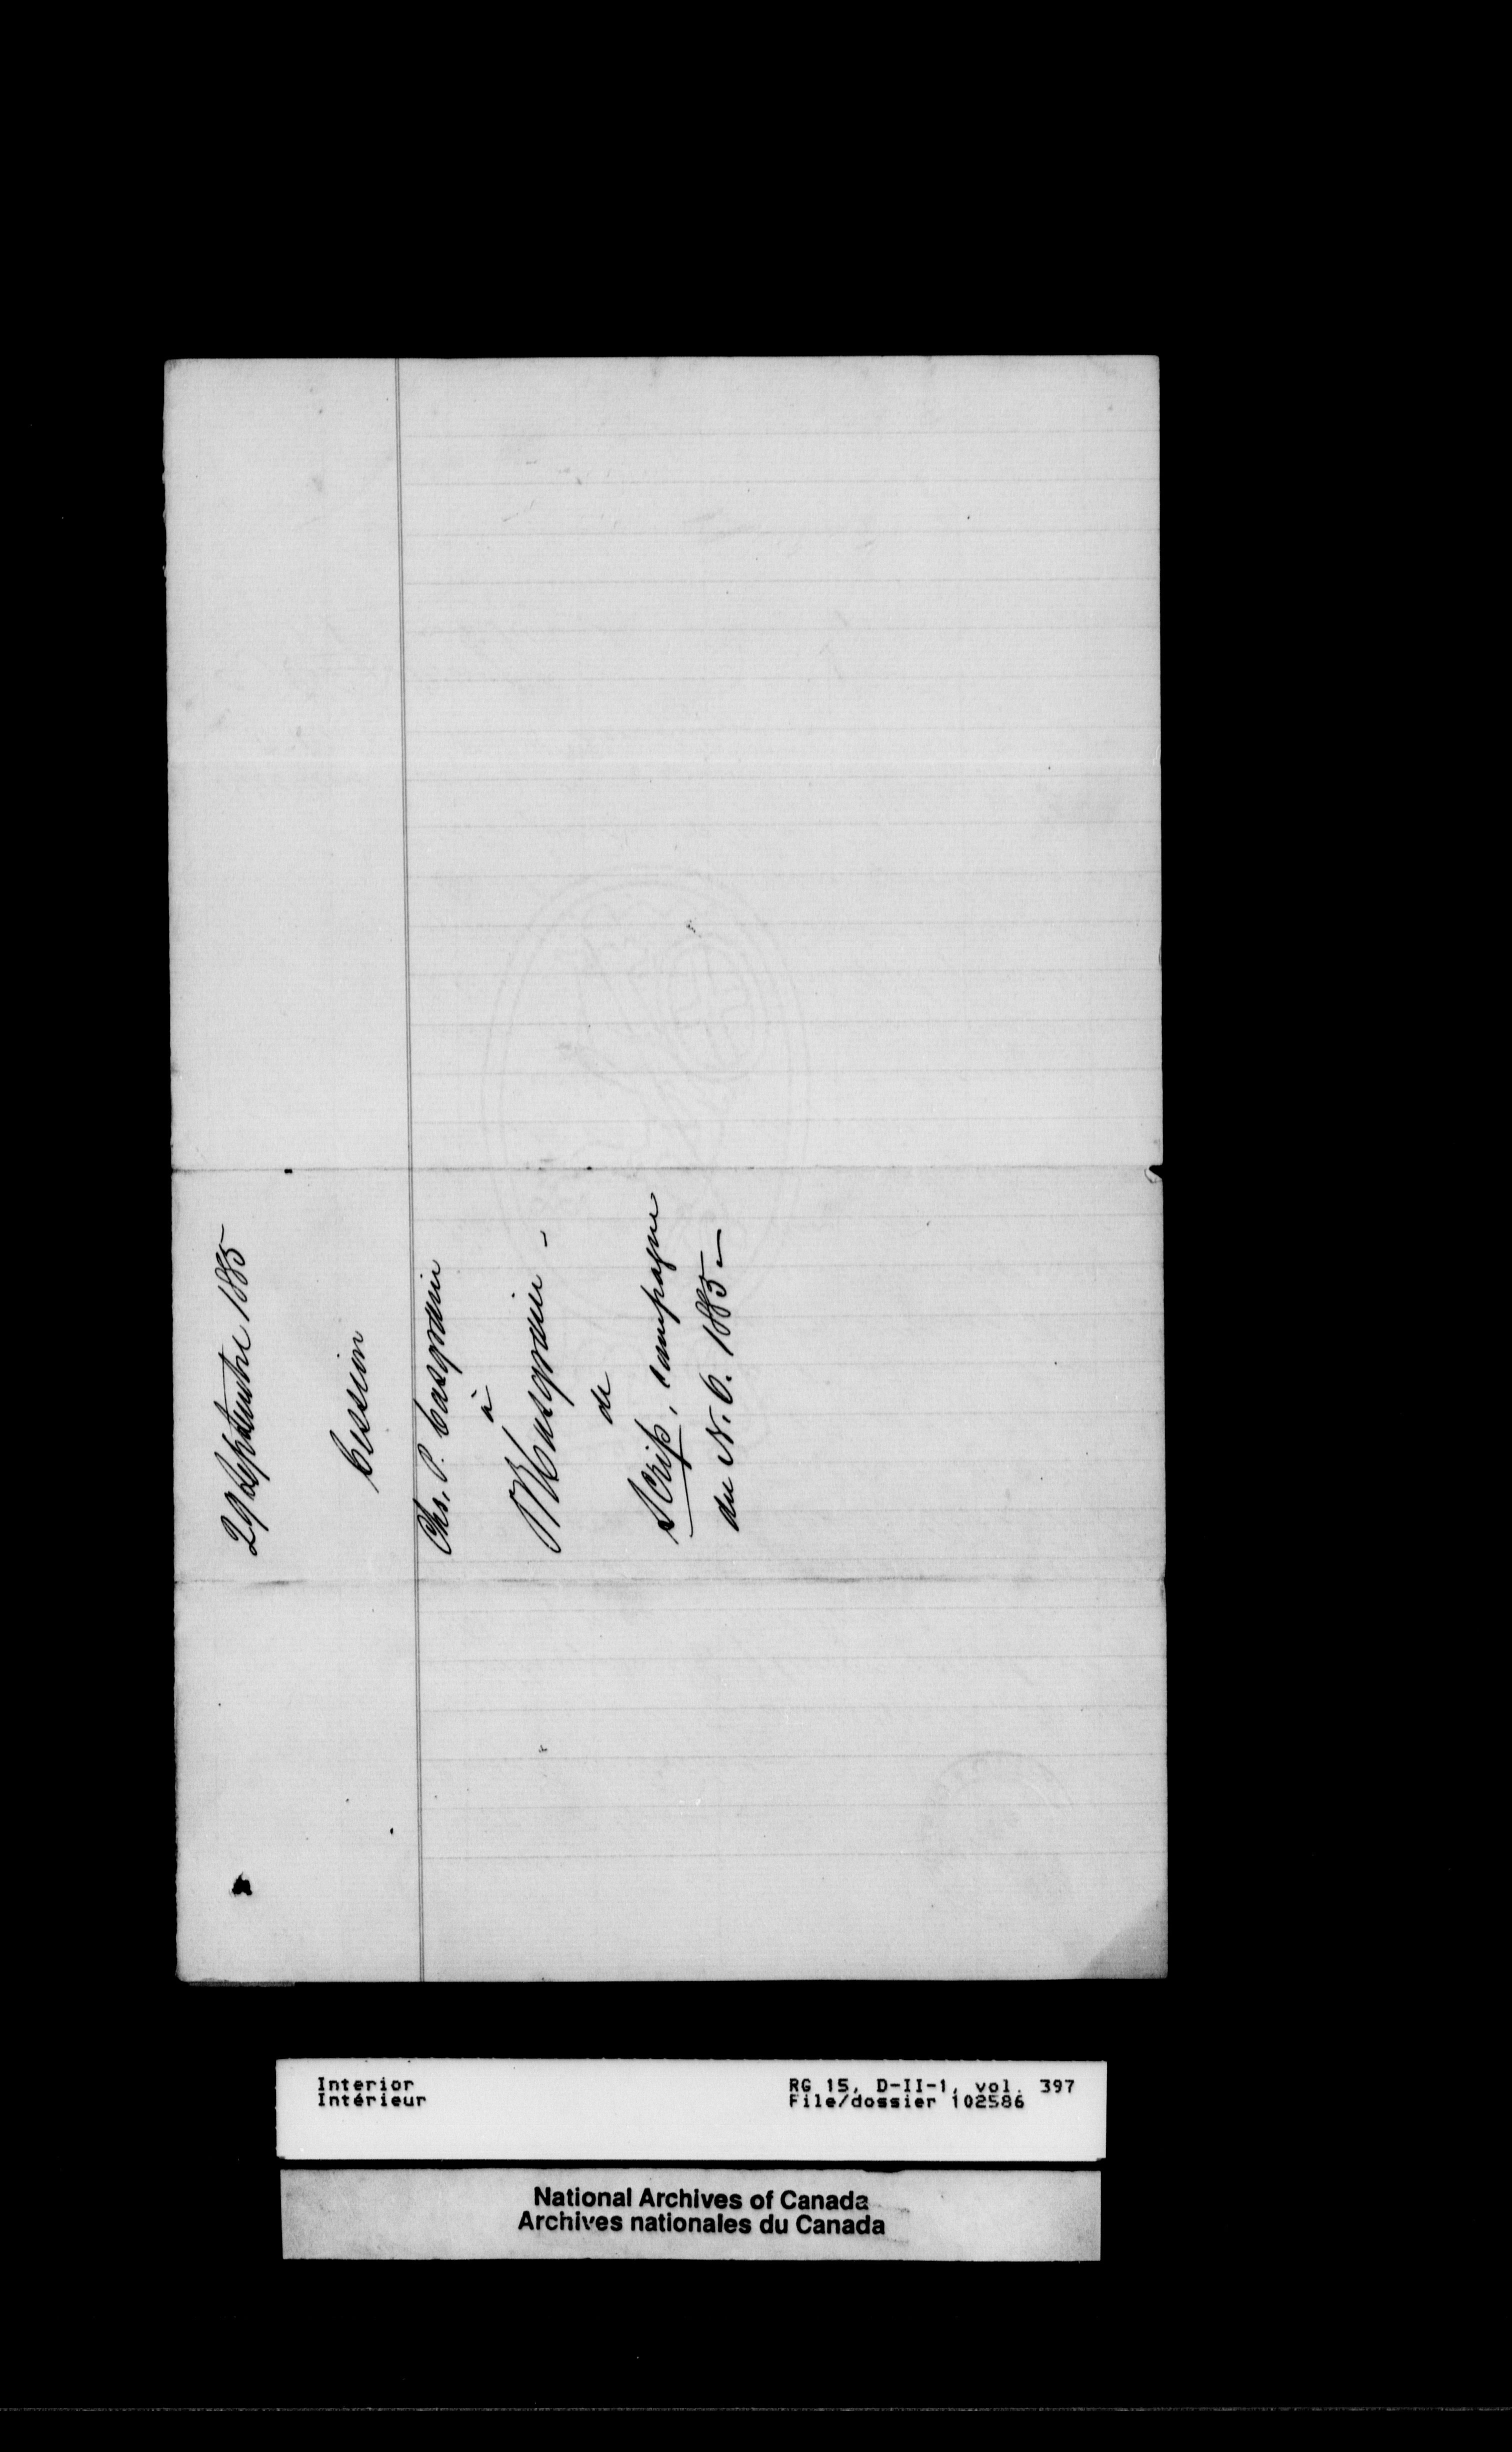 29 Septembre 1885
Cession
Chs. P. Casgrain
à
Casgrain -
de
Scrip, campagne
du N. O. 1885 -
Interior
Intérieur
RG 15, D-II-1, vol. 397
File/dossier 102586
National Archives of Canada
Archives nationales du Canada